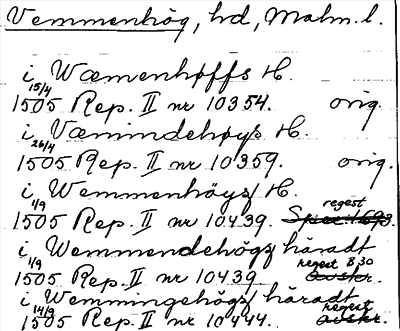 Vemmenhög, hd, Malm. l.
i Wæmenhøffs H.
15/4
1505 Rep. II nr 10354. orig.
i Væmindehøys H.
26/4
1505 Rep. II nr 10359. orig.
i Wemmenhöys H.
1/9 regest
1505 Rep. II nr 10439.
i Wemmendehögz häradt
1/9 regest B 30
1505 Rep. II nr 10439 avskr.
i Wemmingehögz häradt
14/9 regest
1505 Rep. II nr 10444. avskr.